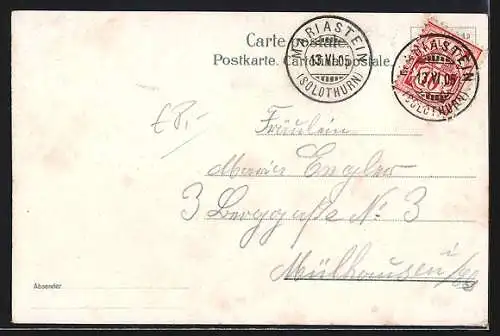 Carte postale.
Postkarte. Cartolina postale.
MARIASTEIN
13.VI.05
(SOLOTHURN)
MARIASTEIN
13.VI.05
(SOLOTHURN)
Fräulein
Maria Engler
3 Berggaße No. 3
Mülhausen i/
Absender